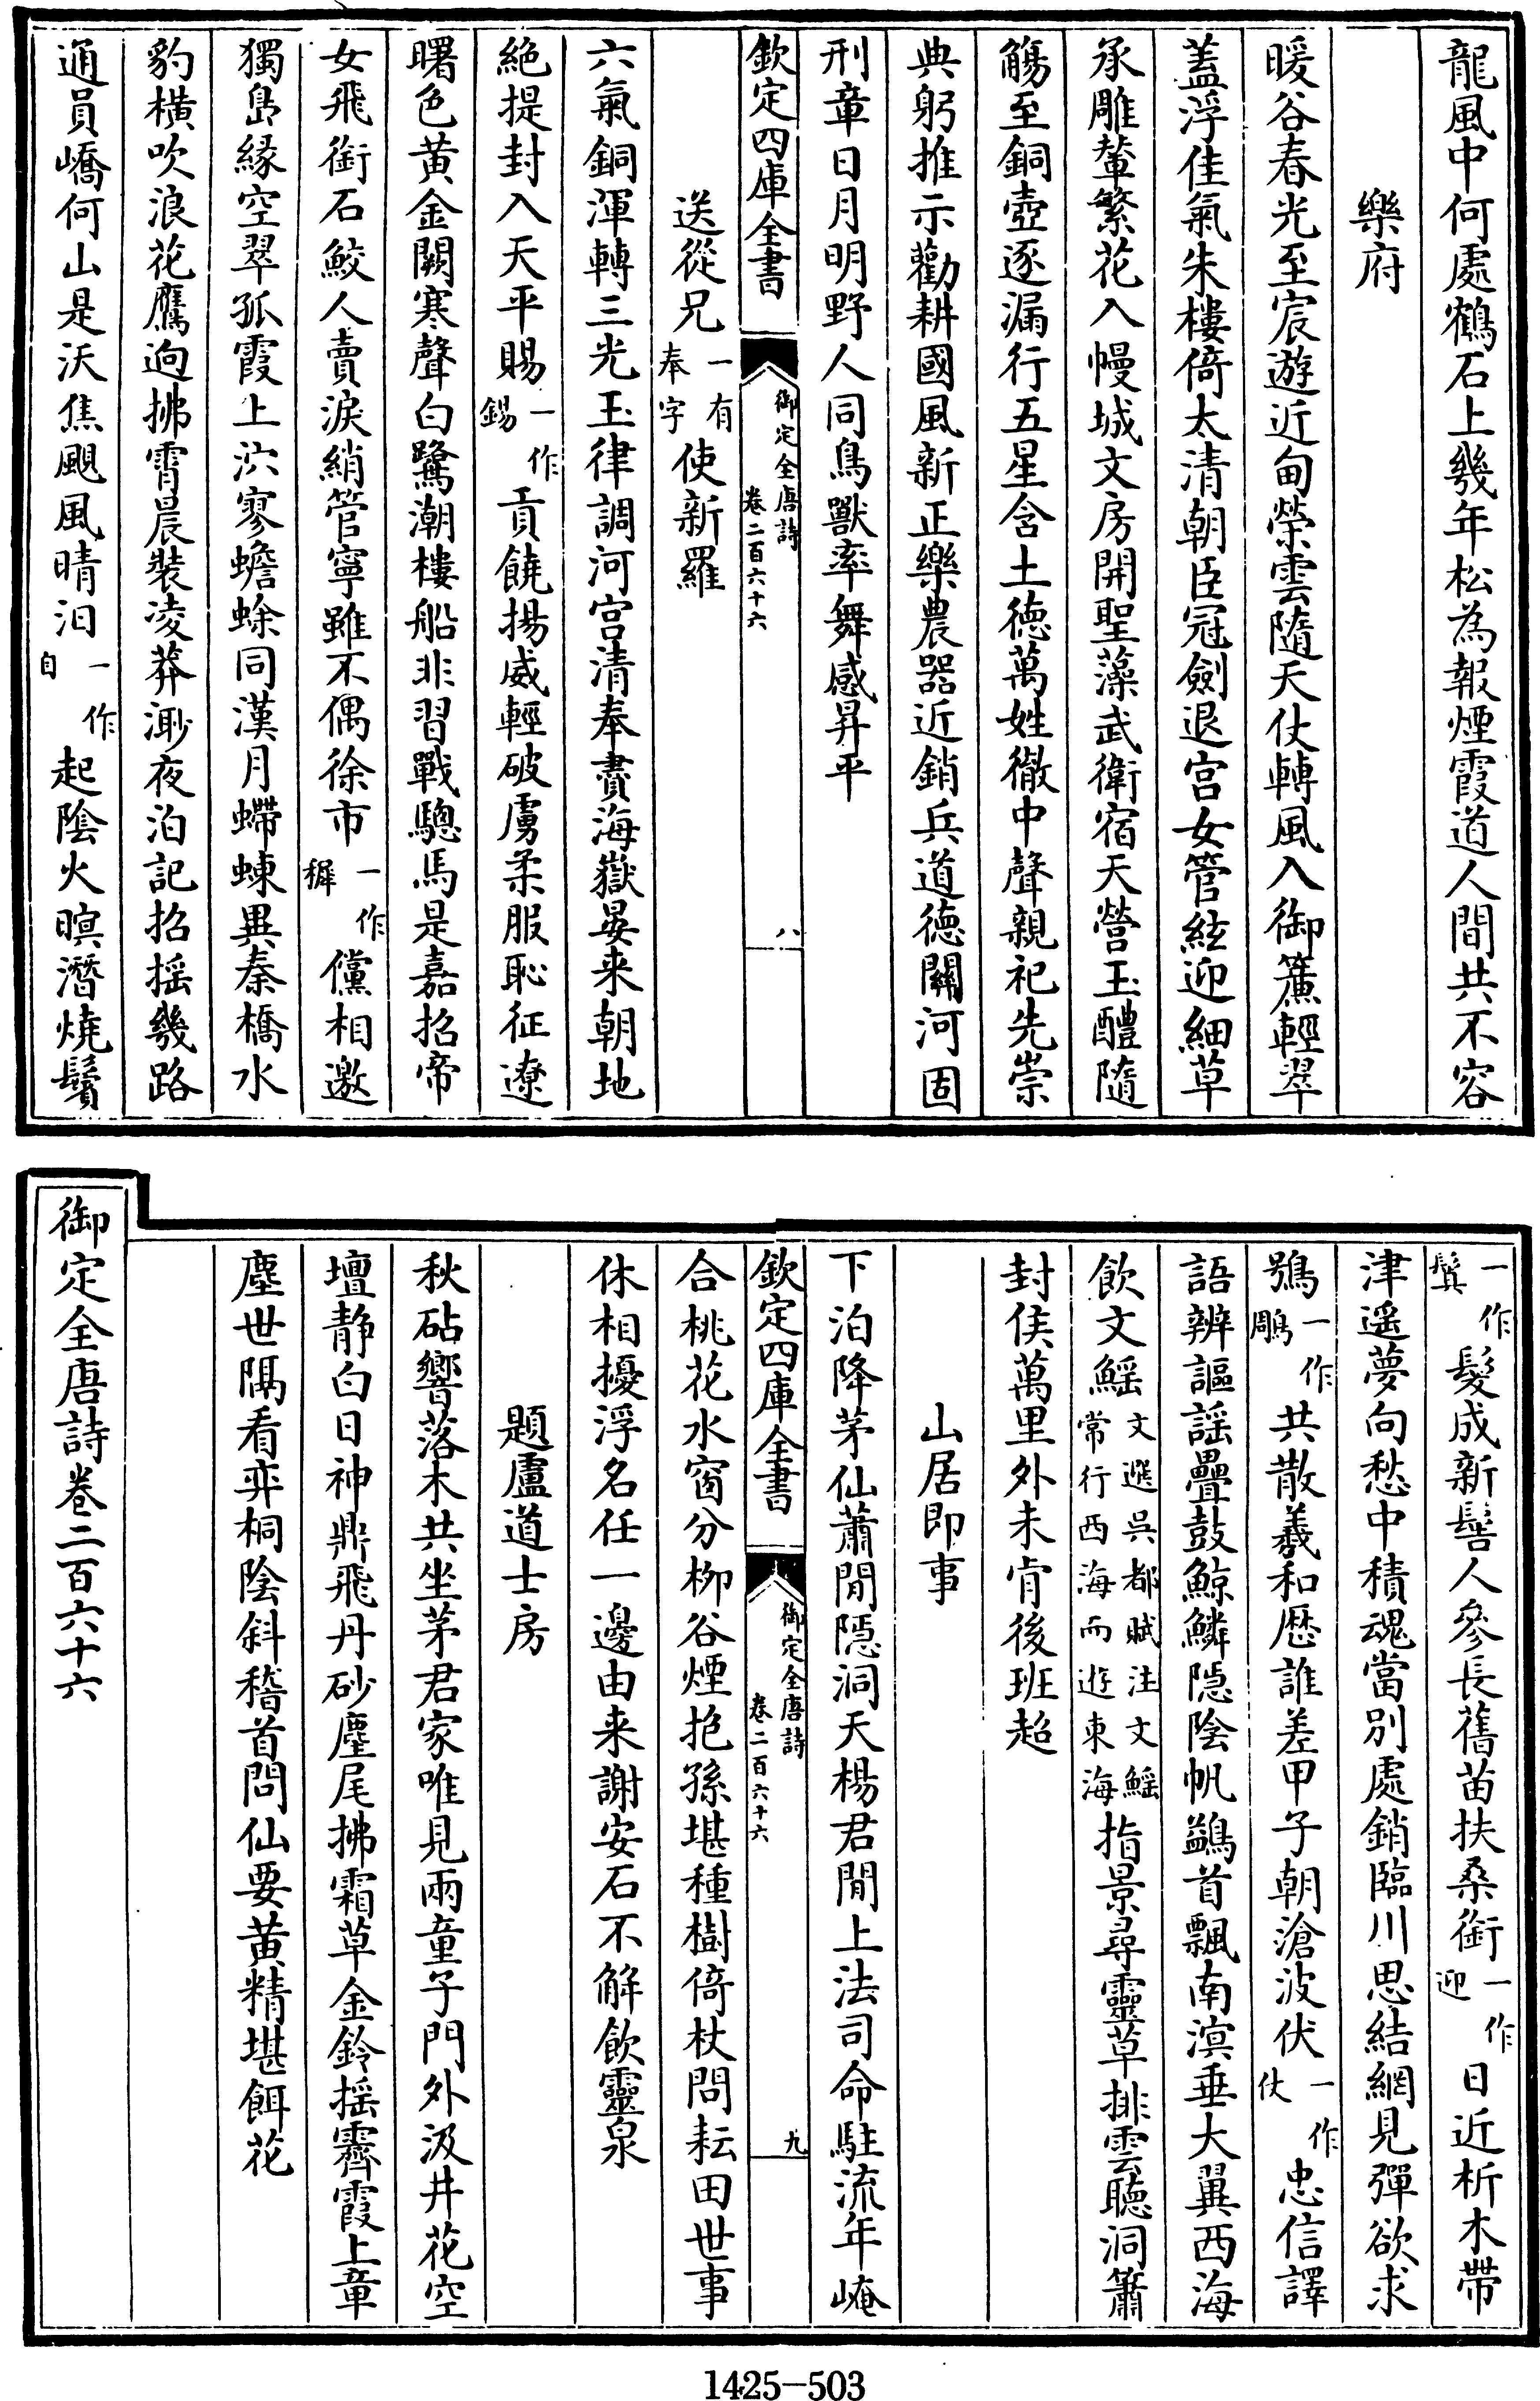 龍風中何處鶴石上幾年松為報煙霞道人間共不容
樂府
暖谷春光至宸遊近甸榮雲隨天仗轉風入御簾輕翠
蓋浮佳氣朱樓倚太清朝臣冠劍退宫女管絃迎細草
承雕輦繁花入幔城文房開聖藻武衛宿天營玉醴隨
觴至銅壺逐漏行五星含土德萬姓徹中聲親祀先崇
典躬推示勸耕國風新正樂農器近銷兵道德關河固
刑章日月明野人同鳥獸率舞感昇平
欽定四庫全書
御定全唐詩
卷二百六十六
八
送從兄一有奉字使新羅
六氣銅渾轉三光玉律調河宫清奉賮海嶽晏来朝地
絶提封入天平賜一作錫貢饒揚威輕破虜柔服恥征遼
曙色黄金闕寒聲白鷺潮樓船非習戰驄馬是嘉招帝
女飛銜石鮫人賣淚綃管寧雖不偶徐市一作穉儻相邀
獨島縁空翠孤霞上泬寥蟾蜍同漢月螮蝀異秦橋水
豹横吹浪花鷹逈拂霄晨裝凌莽渺夜泊記招摇幾路
通員嶠何山是沃焦颶風晴汩一作自起陰火暝潛燒鬢
一作鬒髮成新髻人參長舊苗扶桑銜一作迎日近析木帶
津遥夢向愁中積魂當别處銷臨川思結網見彈欲求
鴞一作鵰共散羲和厯誰差甲子朝滄波伏一作仗忠信譯
語辨謳謡疊鼓鯨鱗隠陰帆鷁首飄南溟垂大翼西海
飲文鰩文選呉都賦注文鰩常行西海而遊東海指景尋靈草排雲聽洞簫
封侯萬里外未肯後班超
山居即事
下泊降茅仙蕭閒隠洞天楊君閒上法司命駐流年崦
欽定四庫全書
御定全唐詩
卷二百六十六
九
合桃花水窗分栁谷煙抱孫堪種樹倚杖問耘田世事
休相擾浮名任一邊由来謝安石不解飲靈泉
題盧道士房
秋砧響落木共坐茅君家唯見兩童子門外汲井花空
壇静白日神鼎飛丹砂麈尾拂霜草金鈴摇霽霞上章
塵世隅看弈桐陰斜稽首問仙要黄精堪餌花
御定全唐詩卷二百六十六
1425-503